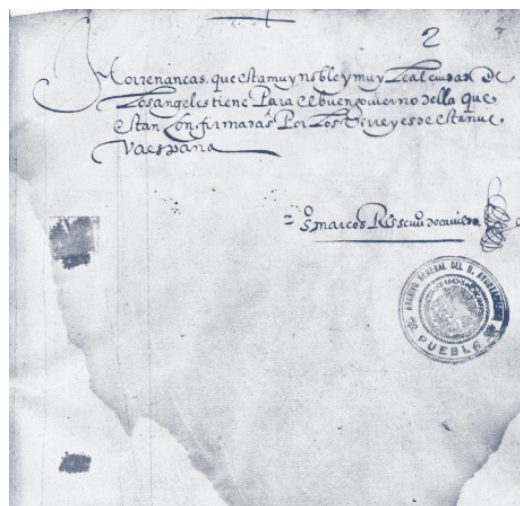 2
Horrenanças. que esta muy noble y muy Leal ciudad De
Los angeles tiene Para el buen gouierno della que
estan Confirmadas Por Los Virreyes de esta nue
Va españa
marcos
ARCHIVO GENERAL DEL H. AYUNTAMIENTO
PUEBLA